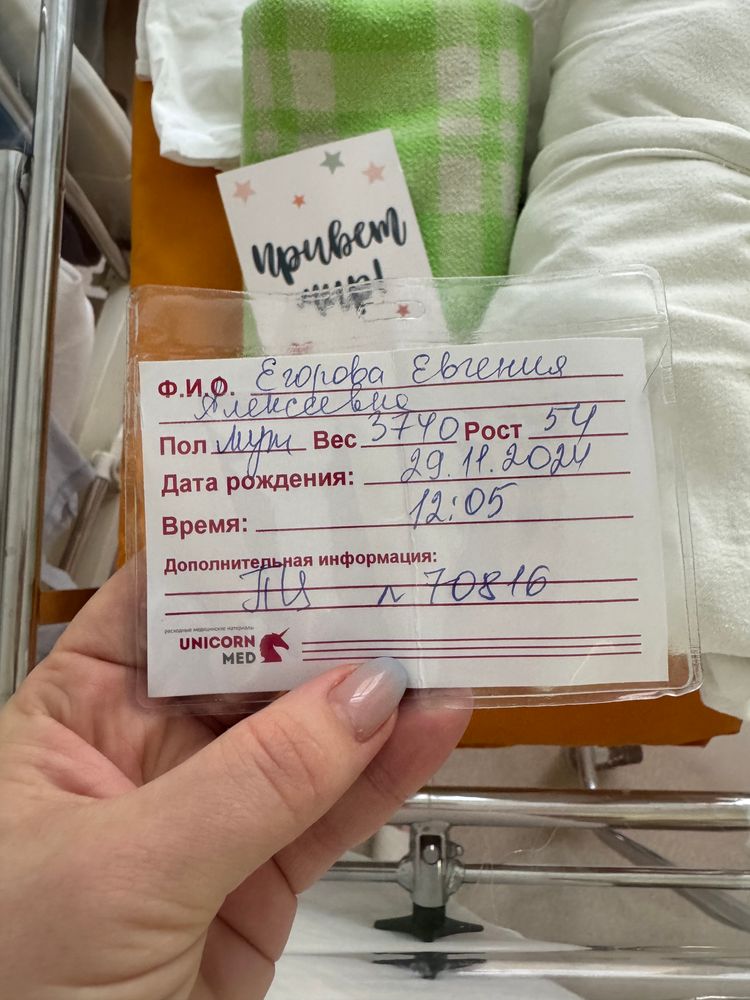 Привет
мир!
Ф.И.О. Егорова Евгения
Алексеевна
Пол муж Вес 3740 Рост 54
Дата рождения: 29.11.2024
Время: 12:05
Дополнительная информация:
ПЦ л 70816
расходные медицинские материалы
UNICORN
MED